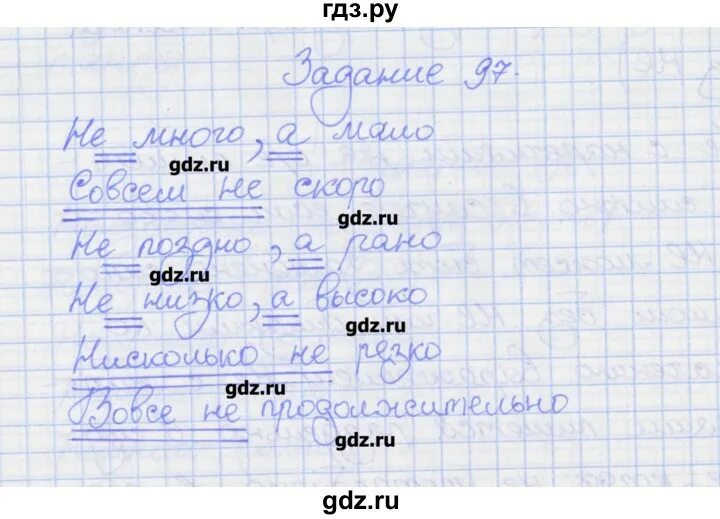 гдз.ру
Задание 97.
Не много, а мало
gdz.ru
Совсем не скоро
gdz.ru
Не поздно, а рано
gdz.ru
Не низко, а высоко
gdz.ru
Нисколько не резко
gdz.ru
Вовсе не продолжительно
gdz.ru
gdz.ru